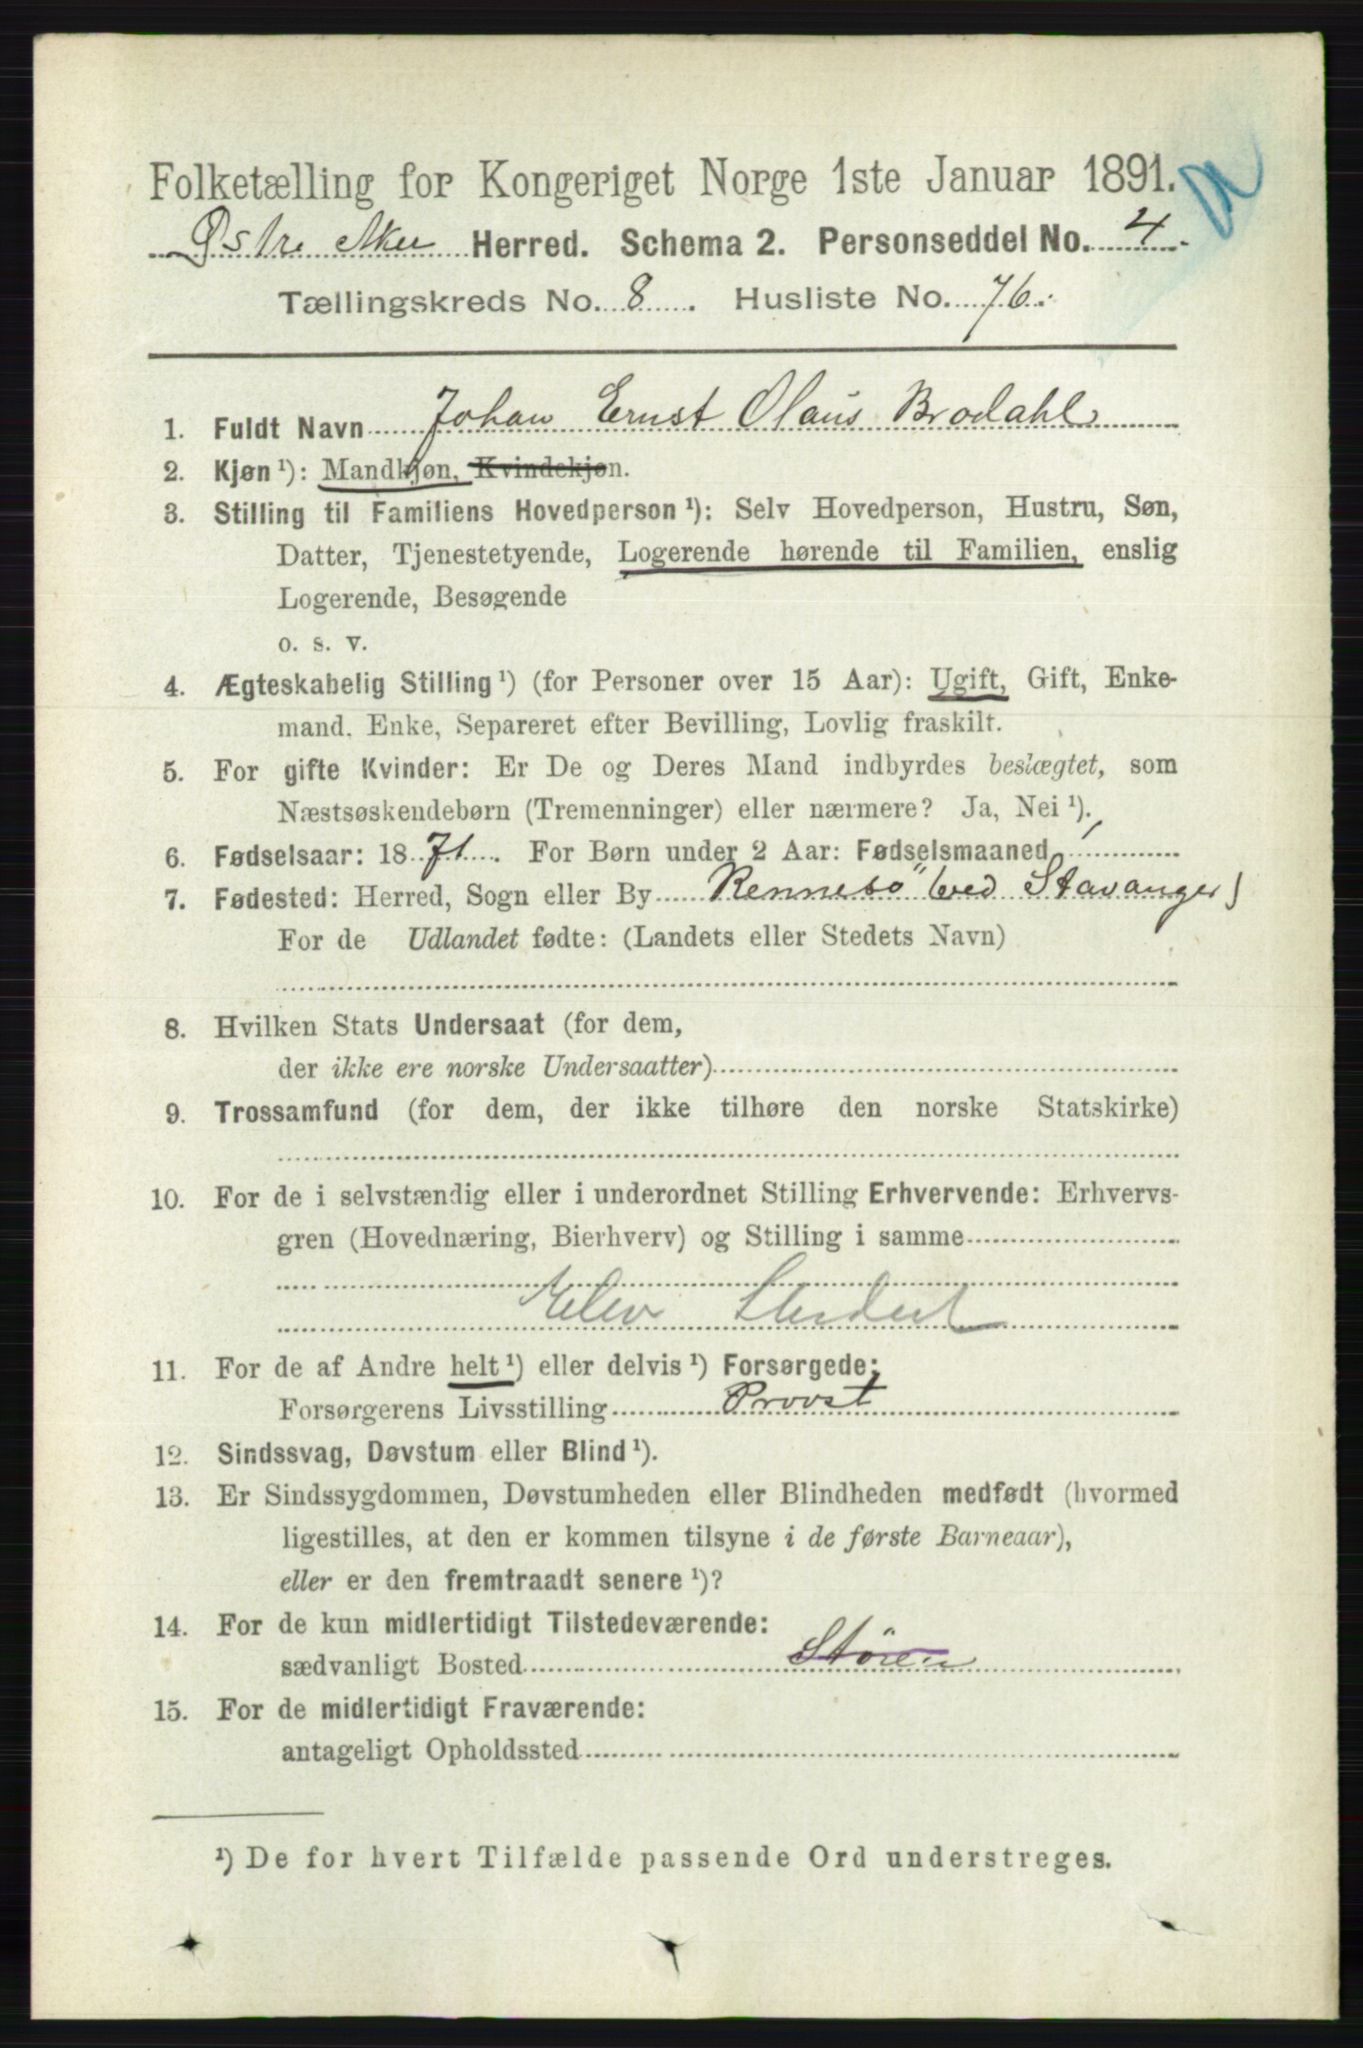 Folketælling for Kongeriget Norge 1ste Januar 1891.
Østre Aker Herred. Schema 2. Personseddel No. 4.
Tællingskreds No. 8. Husliste No. 76.
1. Fuldt Navn Johan Ernst Olaus Brodahl
2. Kjøn ¹): Mandkjøn, Kvindekjøn.
3. Stilling til Familiens Hovedperson ¹): Selv Hovedperson, Hustru, Søn,
Datter, Tjenestetyende, Logerende hørende til Familien, enslig
Logerende, Besøgende
o. s. v.
4. Ægteskabelig Stilling ¹) (for Personer over 15 Aar): Ugift, Gift, Enke-
mand, Enke, Separeret efter Bevilling, Lovlig fraskilt.
5. For gifte Kvinder: Er De og Deres Mand indbyrdes beslægtet, som
Næstsøskendebørn (Tremenninger) eller nærmere? Ja, Nei ¹).
6. Fødselsaar: 1871. For Børn under 2 Aar: Fødselsmaaned
7. Fødested: Herred, Sogn eller By Rennesö (ved Stavanger)
For de Udlandet fødte: (Landets eller Stedets Navn)
8. Hvilken Stats Undersaat (for dem,
der ikke ere norske Undersaatter)
9. Trossamfund (for dem, der ikke tilhøre den norske Statskirke)
10. For de i selvstændig eller i underordnet Stilling Erhvervende: Erhvervs-
gren (Hovednæring, Bierhverv) og Stilling i samme
Elev Student
11. For de af Andre helt ¹) eller delvis ¹) Forsørgede:
Forsørgerens Livsstilling Provst
12. Sindssvag, Døvstum eller Blind ¹).
13. Er Sindssygdommen, Døvstumheden eller Blindheden medfødt (hvormed
ligestilles, at den er kommen tilsyne i de første Barneaar),
eller er den fremtraadt senere ¹)?
14. For de kun midlertidigt Tilstedeværende:
sædvanligt Bosted Stören
15. For de midlertidigt Fraværende:
antageligt Opholdssted
¹) De for hvert Tilfælde passende Ord understreges.